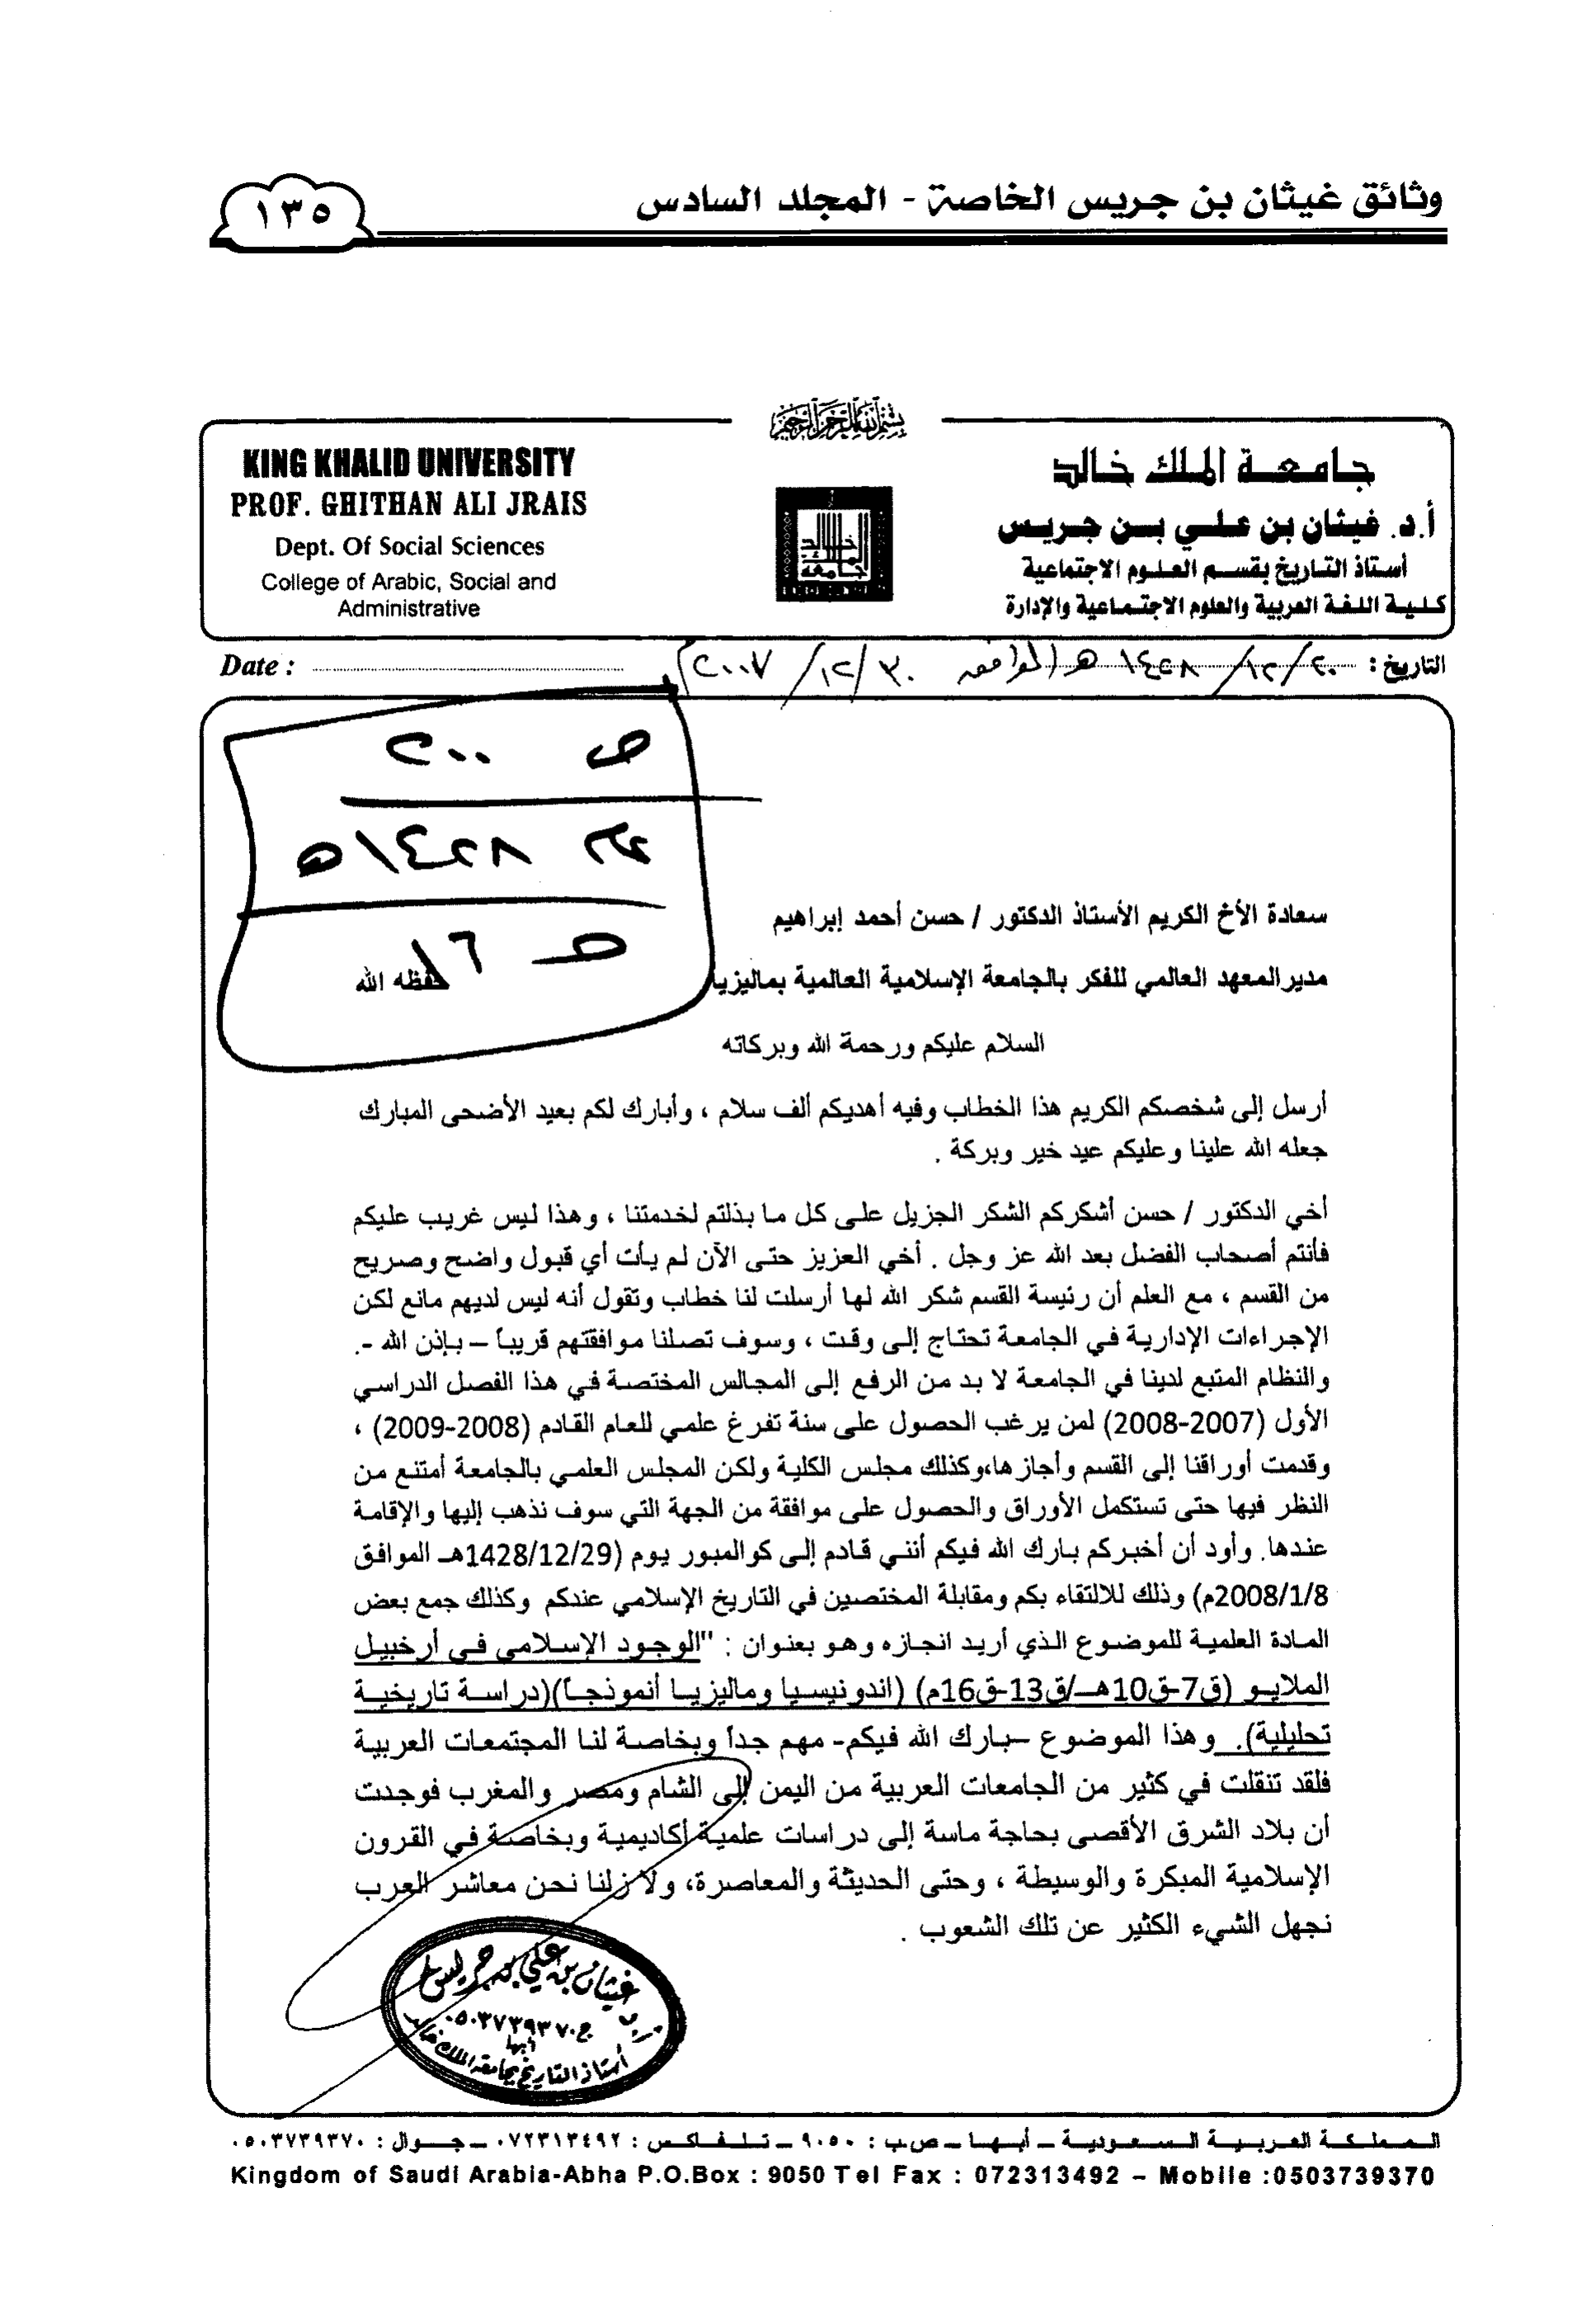 وثائق غيثان بن جريس الخاصة - المجلد السادس
١٣٥
بسم الله الرحمن الرحيم
KING KHALID UNIVERSITY
PROF. GHITHAN ALI JRAIS
Dept. Of Social Sciences
College of Arabic, Social and
Administrative
جامعة الملك خالد
أ.د. غيثان بن علي بن جريس
أستاذ التاريخ بقسم العلوم الاجتماعية
كلية اللغة العربية والعلوم الاجتماعية والإدارة
جامعة الملك خالد
التاريخ : ٢٠/١٢/١٤٢٨ هـ (الموافق ٣٠/١٢/٢٠٠٧)
Date :
ص ٢٠٠
١٤٢٨هـ
١٦
سعادة الأخ الكريم الأستاذ الدكتور / حسن أحمد إبراهيم
مدير المعهد العالمي للفكر بالجامعة الإسلامية العالمية بماليزيا حفظه الله
السلام عليكم ورحمة الله وبركاته
أرسل إلى شخصكم الكريم هذا الخطاب وفيه أهديكم ألف سلام ، وأبارك لكم بعيد الأضحى المبارك
جعله الله علينا وعليكم عيد خير وبركة .
أخي الدكتور / حسن أشكركم الشكر الجزيل على كل ما بذلتم لخدمتنا ، وهذا ليس غريب عليكم
فأنتم أصحاب الفضل بعد الله عز وجل . أخي العزيز حتى الآن لم يأت أي قبول واضح وصريح
من القسم ، مع العلم أن رئيسة القسم شكر الله لها أرسلت لنا خطاب وتقول أنه ليس لديهم مانع لكن
الإجراءات الإدارية في الجامعة تحتاج إلى وقت ، وسوف تصلنا موافقتهم قريباً – بإذن الله -.
والنظام المتبع لدينا في الجامعة لا بد من الرفع إلى المجالس المختصة في هذا الفصل الدراسي
الأول (2007-2008) لمن يرغب الحصول على سنة تفرغ علمي للعام القادم (2008-2009) ،
وقدمت أوراقنا إلى القسم وأجازها،وكذلك مجلس الكلية ولكن المجلس العلمي بالجامعة أمتنع من
النظر فيها حتى تستكمل الأوراق والحصول على موافقة من الجهة التي سوف نذهب إليها والإقامة
عندها. وأود أن أخبركم بارك الله فيكم أنني قادم إلى كوالمبور يوم (1428/12/29هـ الموافق
2008/1/8م) وذلك للالتقاء بكم ومقابلة المختصين في التاريخ الإسلامي عندكم وكذلك جمع بعض
المادة العلمية للموضوع الذي أريد انجازه وهو بعنوان : "الوجود الإسلامي في أرخبيل
الملايو (ق7-ق10هـ/ق13-ق16م) (اندونيسيا وماليزيا أنموذجاً)(دراسة تاريخية
تحليلية). وهذا الموضوع –بارك الله فيكم- مهم جداً وبخاصة لنا المجتمعات العربية
فلقد تنقلت في كثير من الجامعات العربية من اليمن إلى الشام ومصر والمغرب فوجدت
أن بلاد الشرق الأقصى بحاجة ماسة إلى دراسات علمية أكاديمية وبخاصة في القرون
الإسلامية المبكرة والوسيطة ، وحتى الحديثة والمعاصرة، ولا زلنا نحن معاشر العرب
نجهل الشيء الكثير عن تلك الشعوب .
غيثان بن علي بن جريس
ج ٠٥٠٣٧٣٩٣٧٠
أبها
أستاذ التاريخ بجامعة الملك خالد
المملكة العربية السعودية – أبها – ص.ب : ٩٠٥٠ – تلفاكس : ٠٧٢٣١٣٤٩٢ – جوال : ٠٥٠٣٧٣٩٣٧٠
Kingdom of Saudi Arabia-Abha P.O.Box : 9050 Tel Fax : 072313492 – Mobile :0503739370